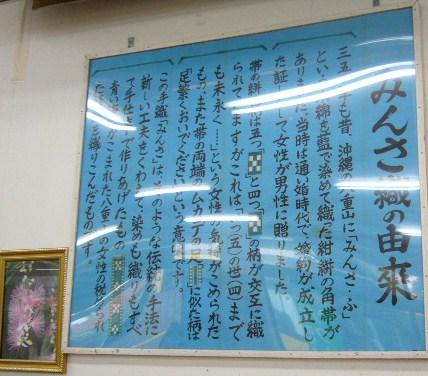 みんさ織の由来
三五〇年も昔、沖縄の八重山に「みんさ・ふ」
という木綿を藍で染めて織だ紺絣の角帯が
ありました。当時は通い婚時代で、婚約が成立し
た証しとして女性が男性に贈りました。
帯の絣には五つと四つの柄が交互に織
られてますがこれは、「いつ(五)の世(四)まで
も末永く……」という女性の気持がこめられた
もの、また帯の両端のムカデの足に似た柄は
「足繁くおいでください」という意味です。
この手織「みんさ」は、そのような伝統の手法に
新しい工夫をくわえ、染めも織りもすべ
て手作で作りあげたもの
青い がこめられた八重山の女性の秘められ
た を織りこんだものです。